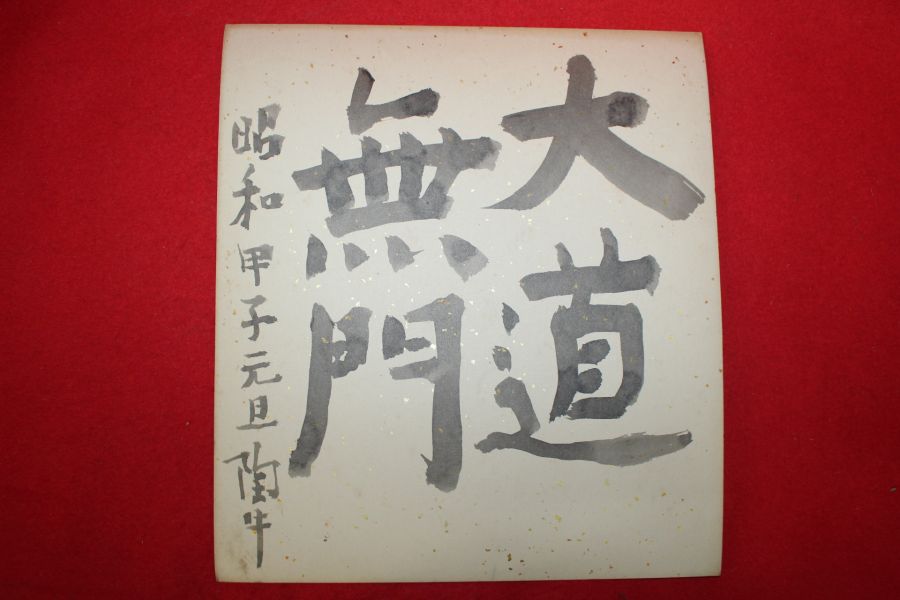 大道
無門
昭和甲子元旦 陶牛